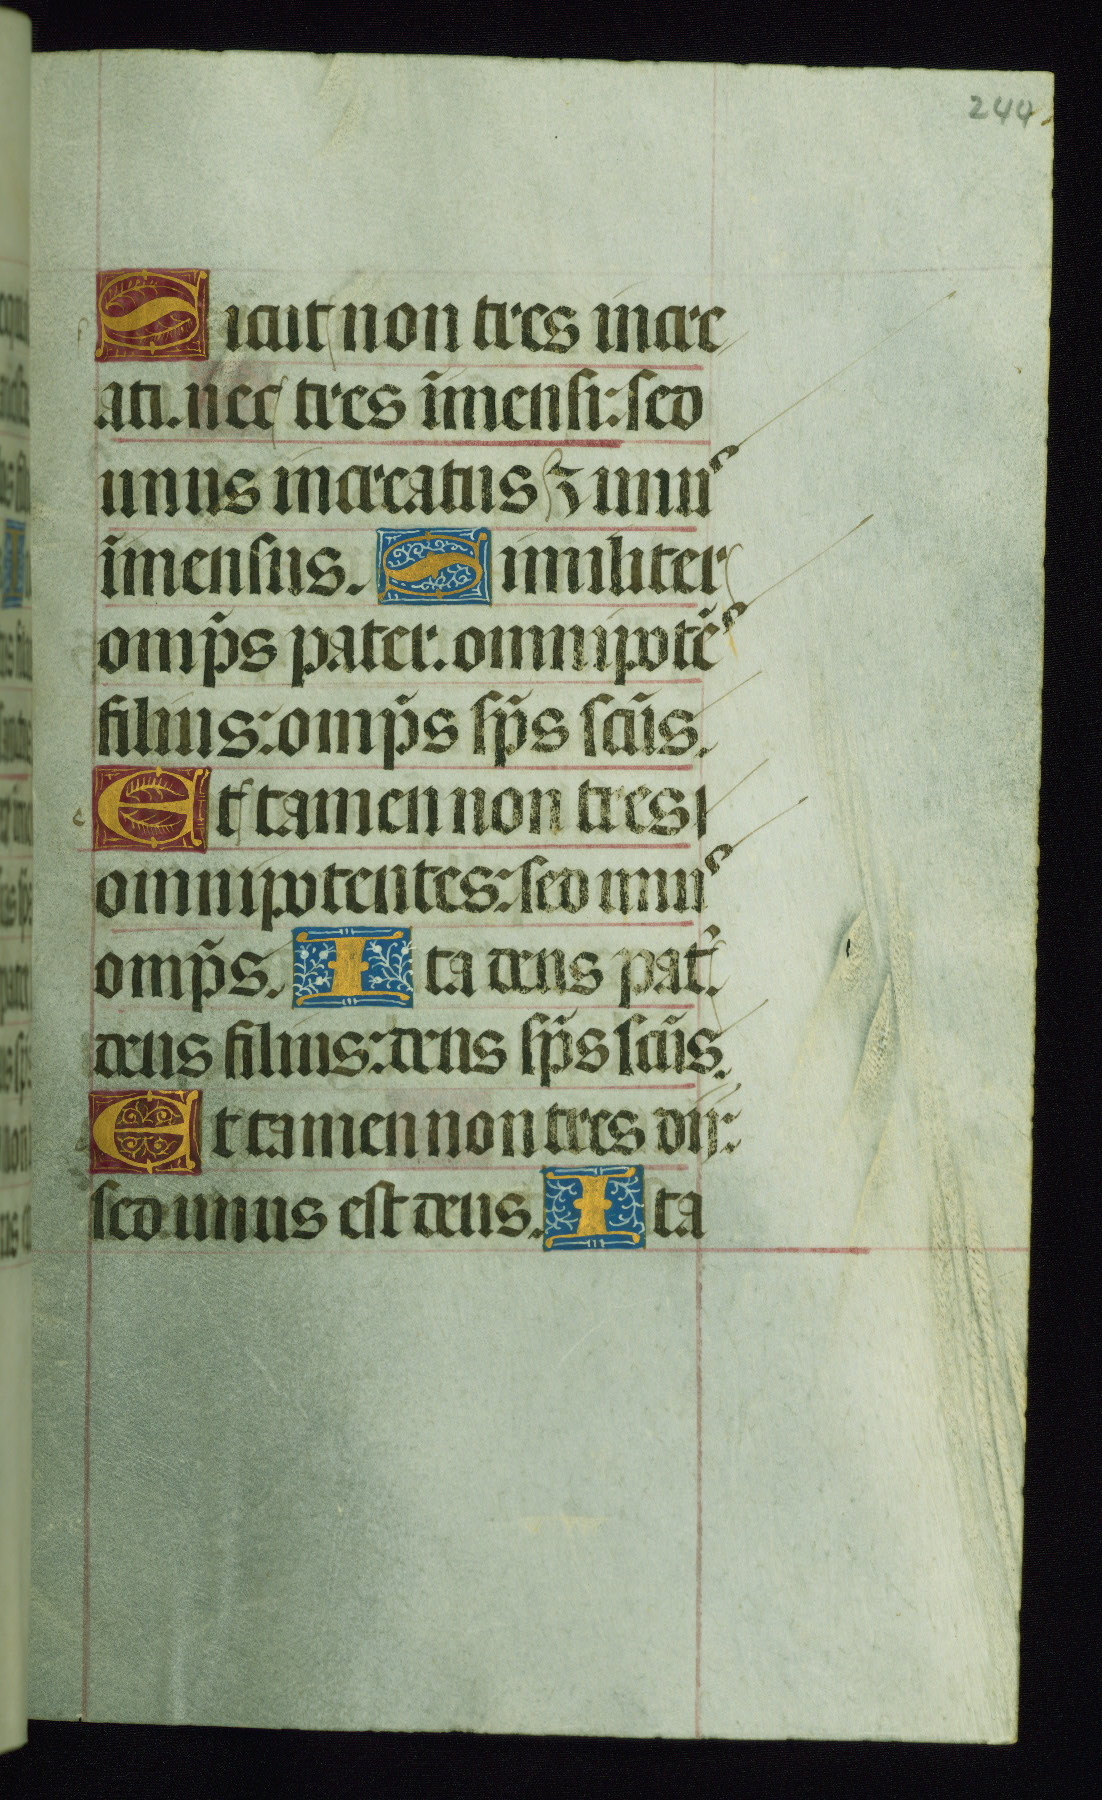 244.
Sicut non tres incre
ati. nec tres im̃ensi: sed
unus increatus ⁊ unus
im̃ensus. Similiter
omp̃s pater. omnipotẽs
filius: omp̃s sp̃s sc̃us.
Et tamen non tres
omnipotentes: sed unus
omp̃s. Ita deus pat̃.
deus filius: deus sp̃s sc̃us.
Et tamen non tres dij:
sed unus est deus. Ita